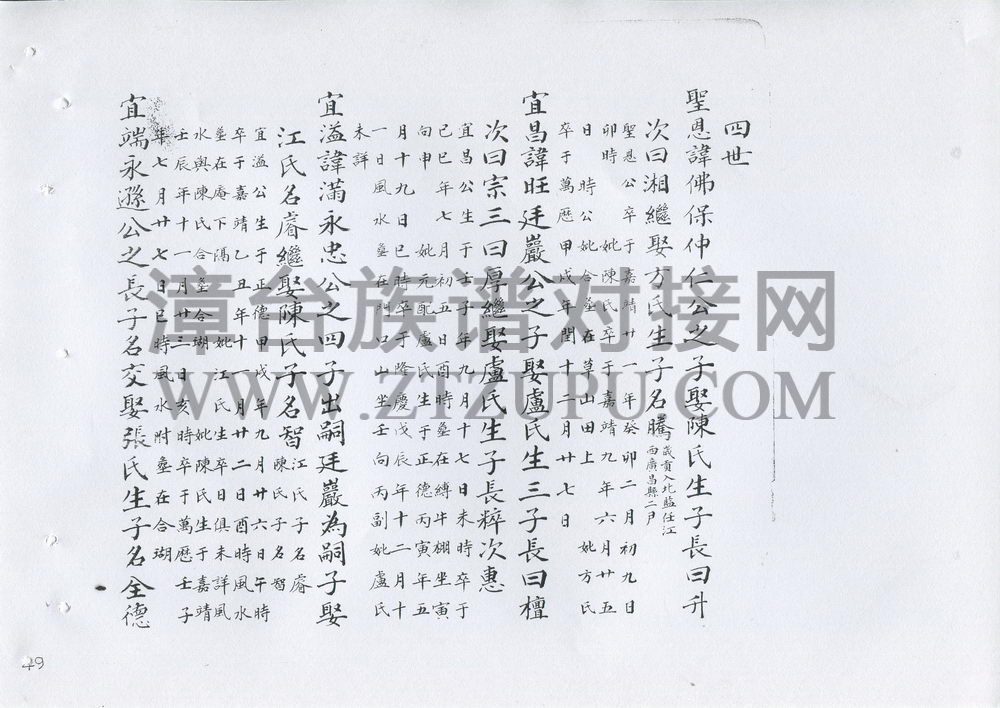 四世
聖恩諱佛保仲仁公之子娶陳氏生子長曰升
次曰湘繼娶方氏生子名騰
歲貢入北監任江
西廣昌縣二尹
聖恩公卒于嘉靖廿一年癸卯二月初九日
卯時 妣陳氏卒于嘉靖九年六月廿五
日 時公妣合塟在草山田上 妣方氏
卒于萬歷甲戌年閏十二月廿七日
宜昌諱旺廷巖公之子娶盧氏生三子長曰檀
次曰宗三曰厚繼娶盧氏生子長粹次惠
宜昌公生于壬子年九月十七日未時卒于
已巳年七月初五日酉時塟在縛牛棚坐寅
向申 妣元配盧氏生于正德丙寅年五
月十九日巳時卒于隆慶戊辰年十二月十
一日風水塟在門口山坐壬向丙副妣盧氏
未詳
宜溢諱滿永忠公之四子出嗣廷巖為嗣子娶
江氏名睿繼娶陳氏子名智
江氏子名睿
陳氏子名智
宜溢公生于正德甲戌年九月廿六日午時
卒于嘉靖乙丑年十一月廿二日酉時風水
塟在庵下隔 妣江氏生卒俱未詳風
水與陳氏合塟合瑚 妣陳氏生于嘉靖
壬辰年十一月廿三日亥時卒于萬歷壬子
年七月廿七日巳時風水附塟在合瑚
宜端永遜公之長子名交娶張氏生子名全德
49
漳台族谱对接网
WWW.ZTZUPU.COM